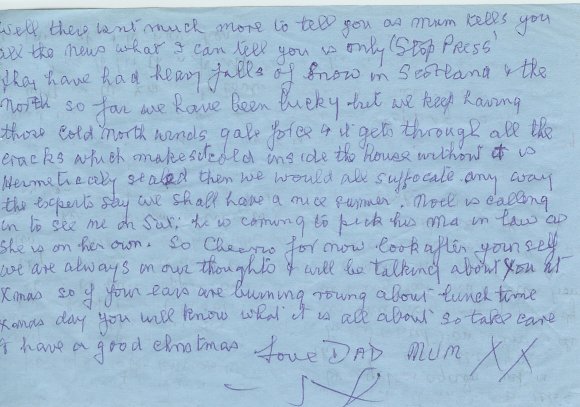 Well there isnt much more to tell you as mum tells you
all the news what I can tell you is only 'STOP PRESS'
they have had heavy falls of snow in Scotland & the
North so far we have been lucky but we keep having
those cold North winds gale force 4 it gets through all the
cracks which makes it cold inside the house without it is
Hermetically sealed then we would all suffocate any way
the experts say we shall have a nice summer. Noel is calling
in to see me on Sat: he is coming to pick his ma in law as
she is on her own. So Cheerio for now look after yourself
we are always in our thoughts & will be talking about you at
Xmas so if your ears are burning round about lunch time
Xmas day you will know what it is all about so take care
& have a good christmas Love DAD MUM XX